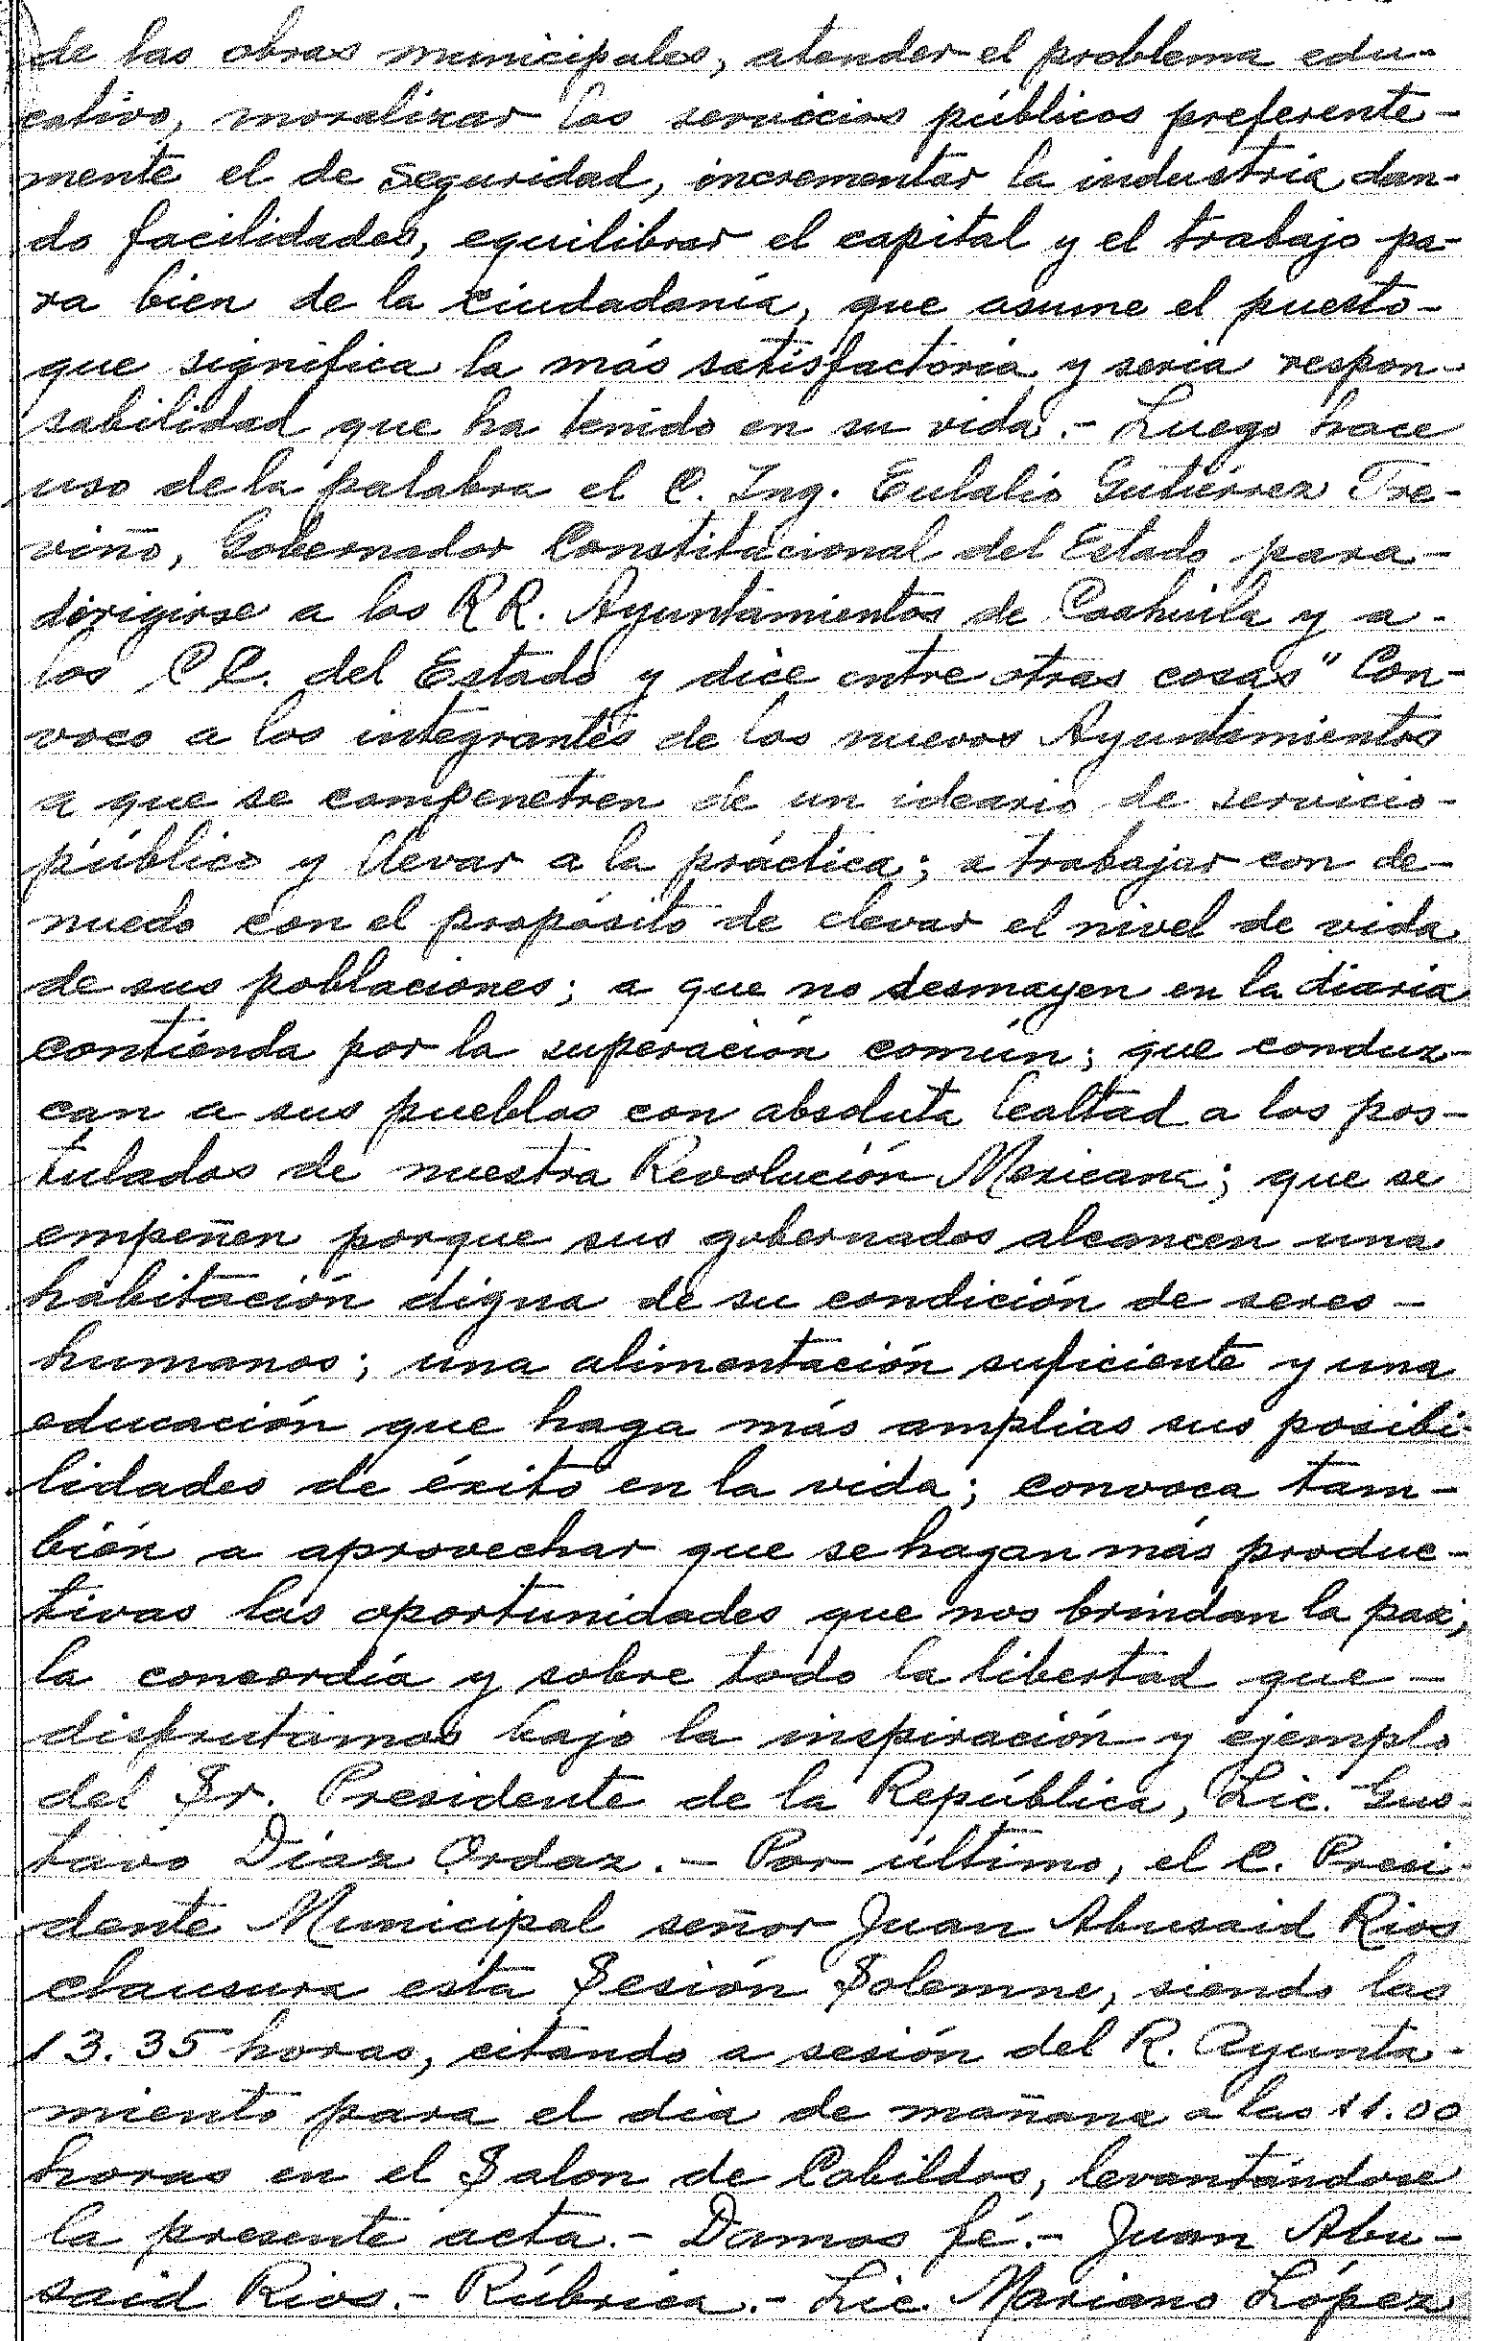 de las obras municipales, atender el problema edu-
cativo, moralizar los servicios públicos preferente-
mente el de seguridad, incrementar la industria dan-
do facilidades, equilibrar el capital y el trabajo pa-
ra bien de la ciudadanía, que asume el puesto-
que significa la más satisfactoria y seria respon-
sabilidad que ha tenido en su vida.- Luego hace
uso de la palabra el C. Ing. Eulalio Gutiérrez Tre-
viño, Gobernador Constitucional del Estado para-
dirigirse a los RR. Ayuntamientos de Coahuila y a-
los CC. del Estado y dice entre otras cosas " Con-
voco a los integrantes de los nuevos Ayuntamientos
a que se compenetren de un ideario de servicio-
público y llevar a la práctica; a trabajar con de-
nuedo con el propósito de elevar el nivel de vida
de sus poblaciones; a que no desmayen en la diaria
contienda por la superación común; que conduz-
can a sus pueblos con absoluta lealtad a los pos-
tulados de nuestra Revolución Mexicana; que se
empeñen porque sus gobernados alcancen una
habitación digna de su condición de seres-
humanos; una alimentación suficiente y una
educación que haga más amplias sus posibi-
lidades de éxito en la vida; convoca tam-
bién a aprovechar que se hagan más produc-
tivas las oportunidades que nos brindan la paz,
la concordia y sobre todo la libertad que-
disfrutamos bajo la inspiración y ejemplo
del Sr. Presidente de la República, Lic. Gus-
tavo Díaz Ordaz.- Por último, el C. Presi-
dente Municipal señor Juan Abusaid Rios
clausura esta Sesión Solemne, siendo las
13.35 horas, citando a sesión del R. Ayunta-
miento para el día de mañana a las 11.00
horas en el Salon de Cabildos, levantándose
la presente acta.- Damos fé.- Juan Abu-
said Rios.- Rúbrica.- Lic. Mariano López